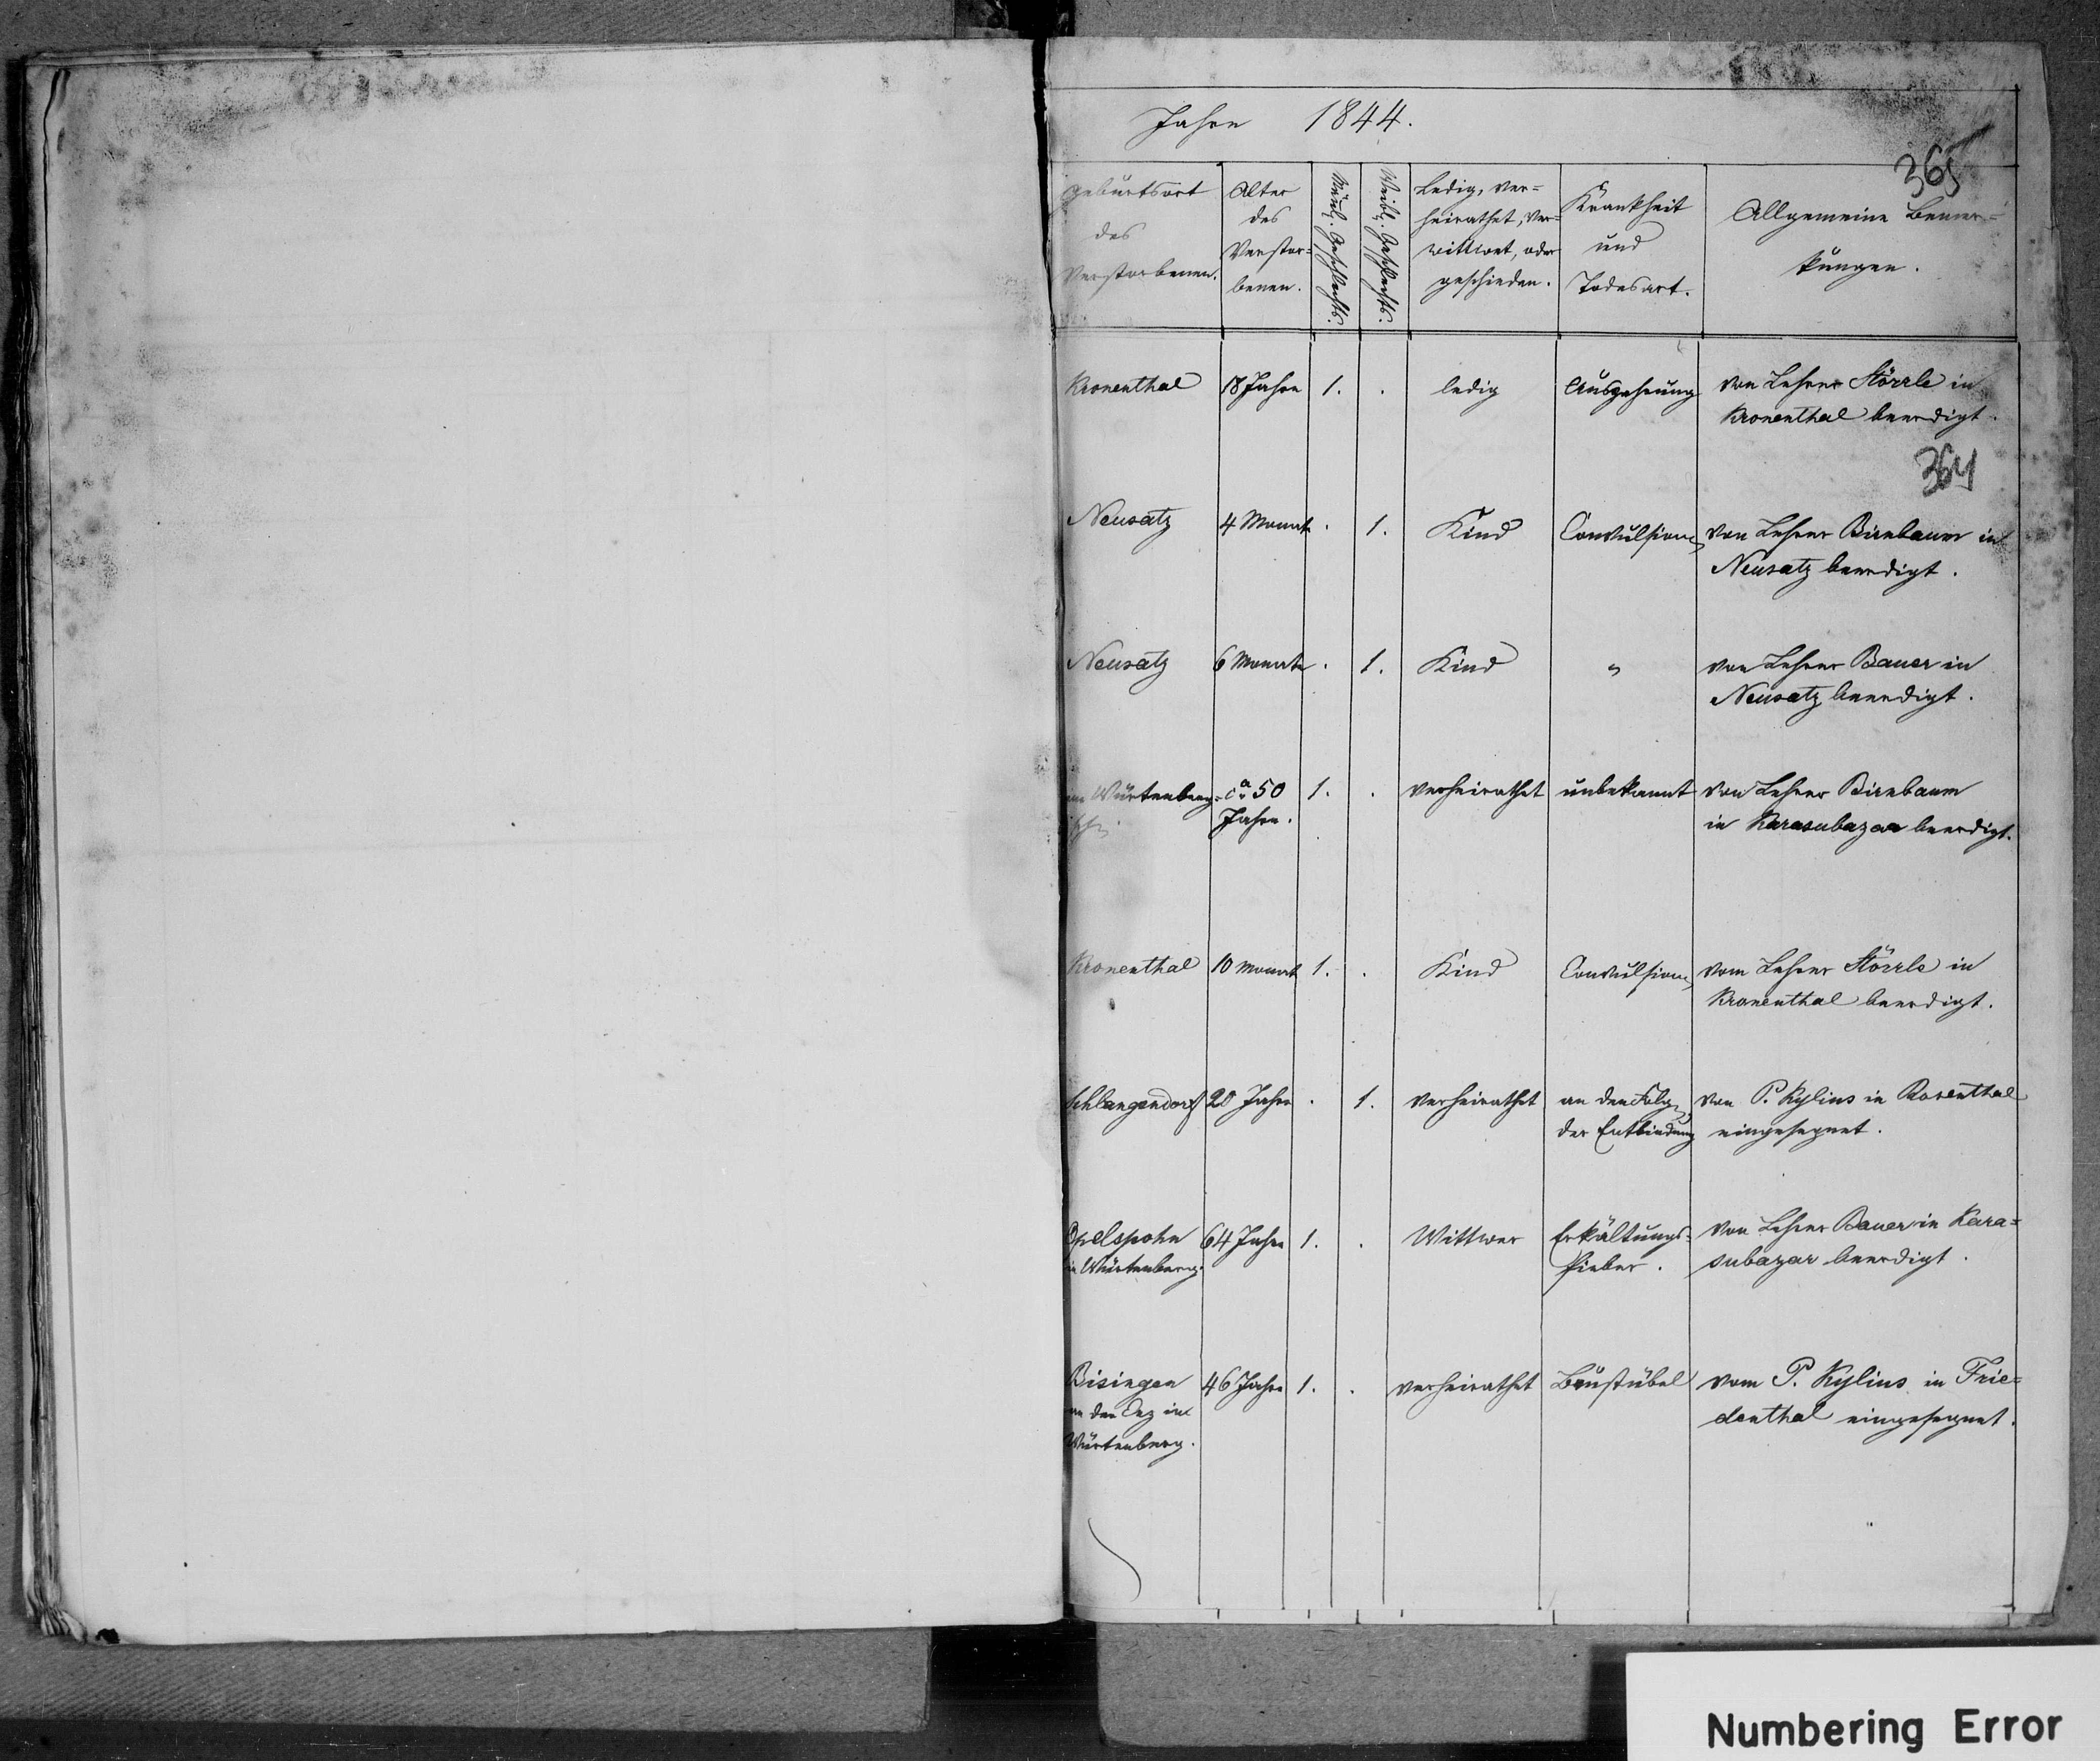 Jahre 1844.
365
Geburtsort
des
Verstorbenen.
Alter
des
Verstor=
benen.
Männl. Geschlechts.
Weibl. Geschlechts.
Ledig, ver=
heirathet, ver=
wittwet, oder
geschieden.
Krankheit
und
Todesart.
Allgemeine Bemer=
kungen.
Kronenthal 18 Jahre 1. . ledig Auszehrung von Lehrer Störrle in
Kronenthal beerdigt.
364
Neusatz 4 Monate . 1. Kind Convulsionen von Lehrer Birnbaum in
Neusatz beerdigt.
Neusatz 6 Monate . 1. Kind " von Lehrer Bauer in
Neusatz beerdigt.
im Würtenberg= ca 50 1. . verheirathet unbekannt von Lehrer Birnbaum
Jahre. in Karasubazar beerdigt.
Kronenthal 10 Monate 1. . Kind Convulsionen vom Lehrer Störrle in
Kronenthal beerdigt.
Schlangendorf 20 Jahre . 1. verheirathet an den Folgen von P. Kylius in Rosenthal
der Entbindung eingesegnet.
Opelspohn 64 Jahre 1. . Wittwer Erkältungs= von Lehrer Bauer in Kara=
in Würtenberg. Fieber. subazar beerdigt.
Bisingen 46 Jahre 1. . verheirathet Brustübel vom P. Kylius in Frie=
an der Enz in denthal eingesegnet.
Würtenberg.
Numbering Error